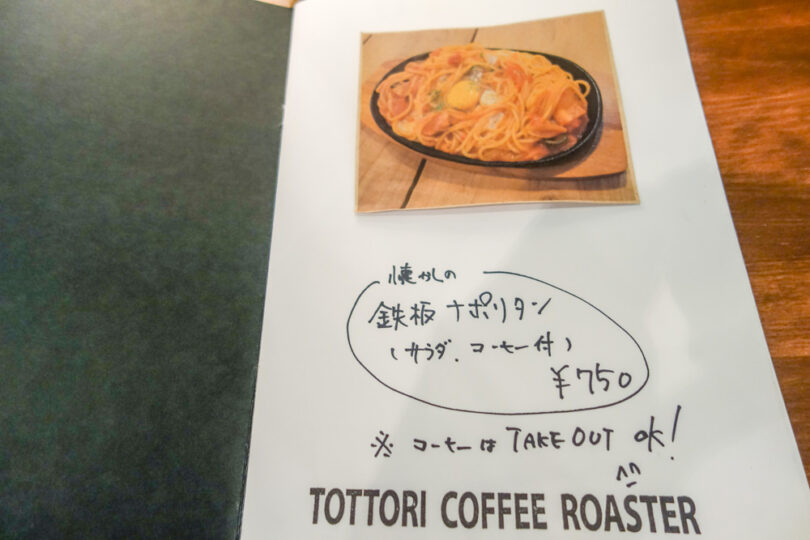 懐かしの
鉄板ナポリタン
(サラダ、コーヒー付)
¥750
※ コーヒーは TAKE OUT OK!
TOTTORI COFFEE ROASTER